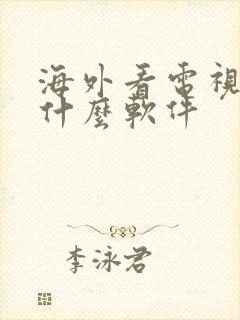 海外看電視
什麼軟件
李泳君